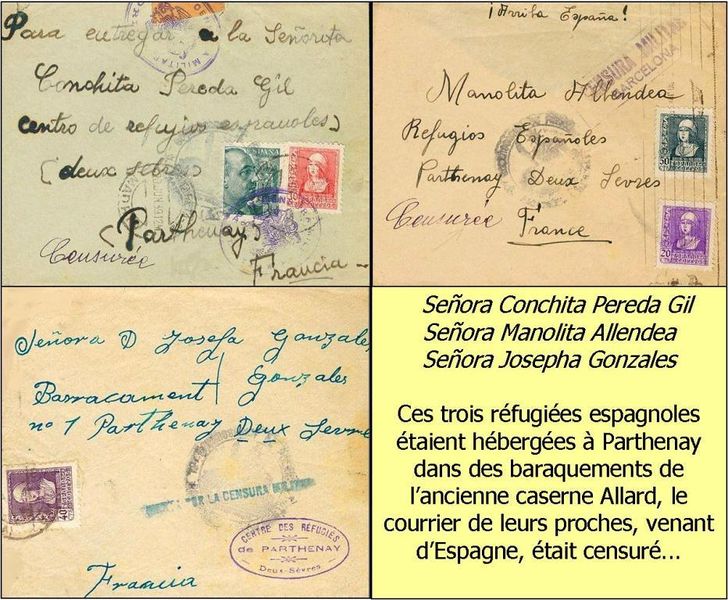 Para entregar a la Señorita
Conchita Pereda Gil
centro de refugios espanoles)
(deux sebres
(Parthenay)
Censurée
Francia
ESPAÑA
¡Arriba España!
CENSURA MILITAR
BARCELONA
Manolita Allendea
Refugios Españoles
Parthenay Deux Sevres
Censurée
France
50
20
Señora D Josefa Gonzales
Gonzales
Barracament
nº 1 Parthenay Deux Sevre
40
POR LA CENSURA MILITAR
CENTRE DES RÉFUGIÉS
de PARTHENAY
Deux-Sèvres
Francia
Señora Conchita Pereda Gil
Señora Manolita Allendea
Señora Josepha Gonzales
Ces trois réfugiées espagnoles
étaient hébergées à Parthenay
dans des baraquements de
l'ancienne caserne Allard, le
courrier de leurs proches, venant
d'Espagne, était censuré...